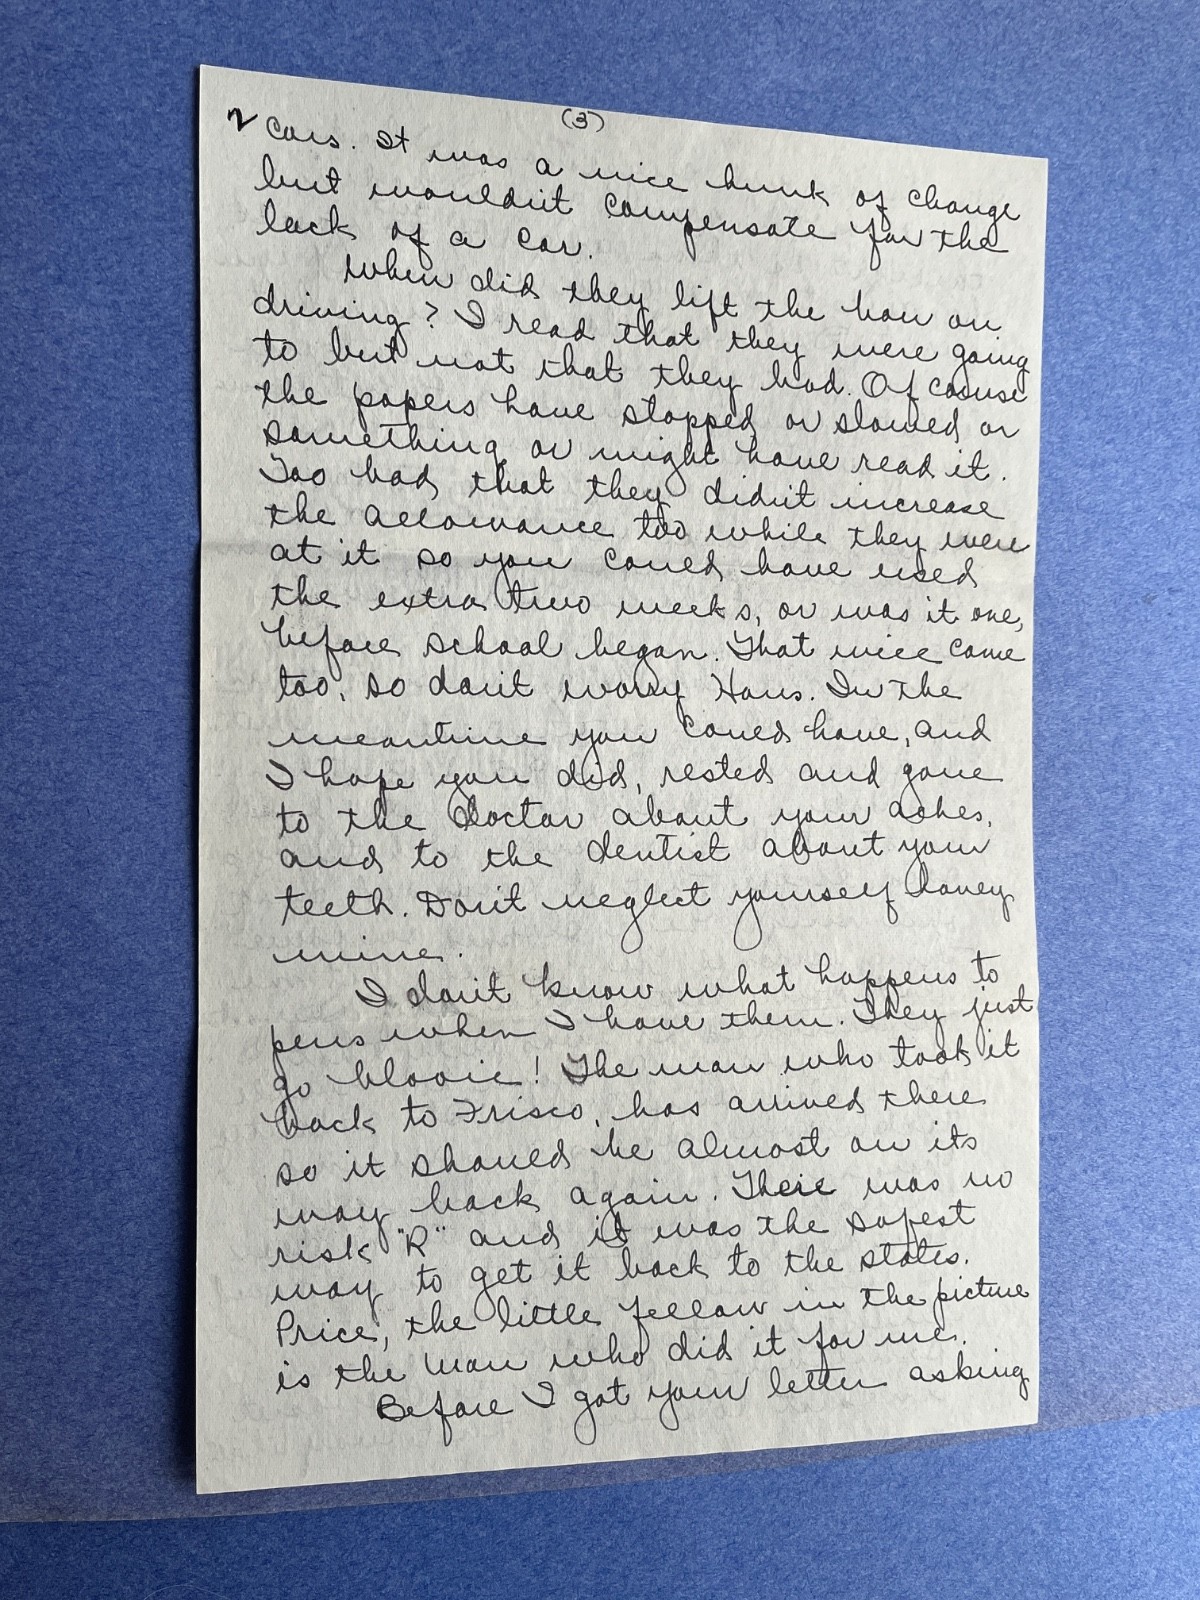 (3)
2 cars. It was a nice hunk of change
but wouldn't compensate for the
lack of a car.
When did they lift the ban on
driving? I read that they were going
to but not that they had. Of course
the papers have stopped or slowed or
something or might have read it.
Too bad that they didn't increase
the allowance too while they were
at it so you could have used
the extra two weeks, or was it one,
before school began. That will come
too, so don't worry Hans. In the
meantime you could have, and
I hope you did, rested and gone
to the doctor about your aches,
and to the dentist about your
teeth. Don't neglect yourself honey
mine.
I don't know what happens to
pens when I have them. They just
go blooie! The man who took it
back to Frisco, has arrived there
so it should be almost on its
way back again. There was no
risk "R" and it was the safest
way to get it back to the states.
Price, the little fellow in the picture
is the man who did it for me.
Before I got your letter asking